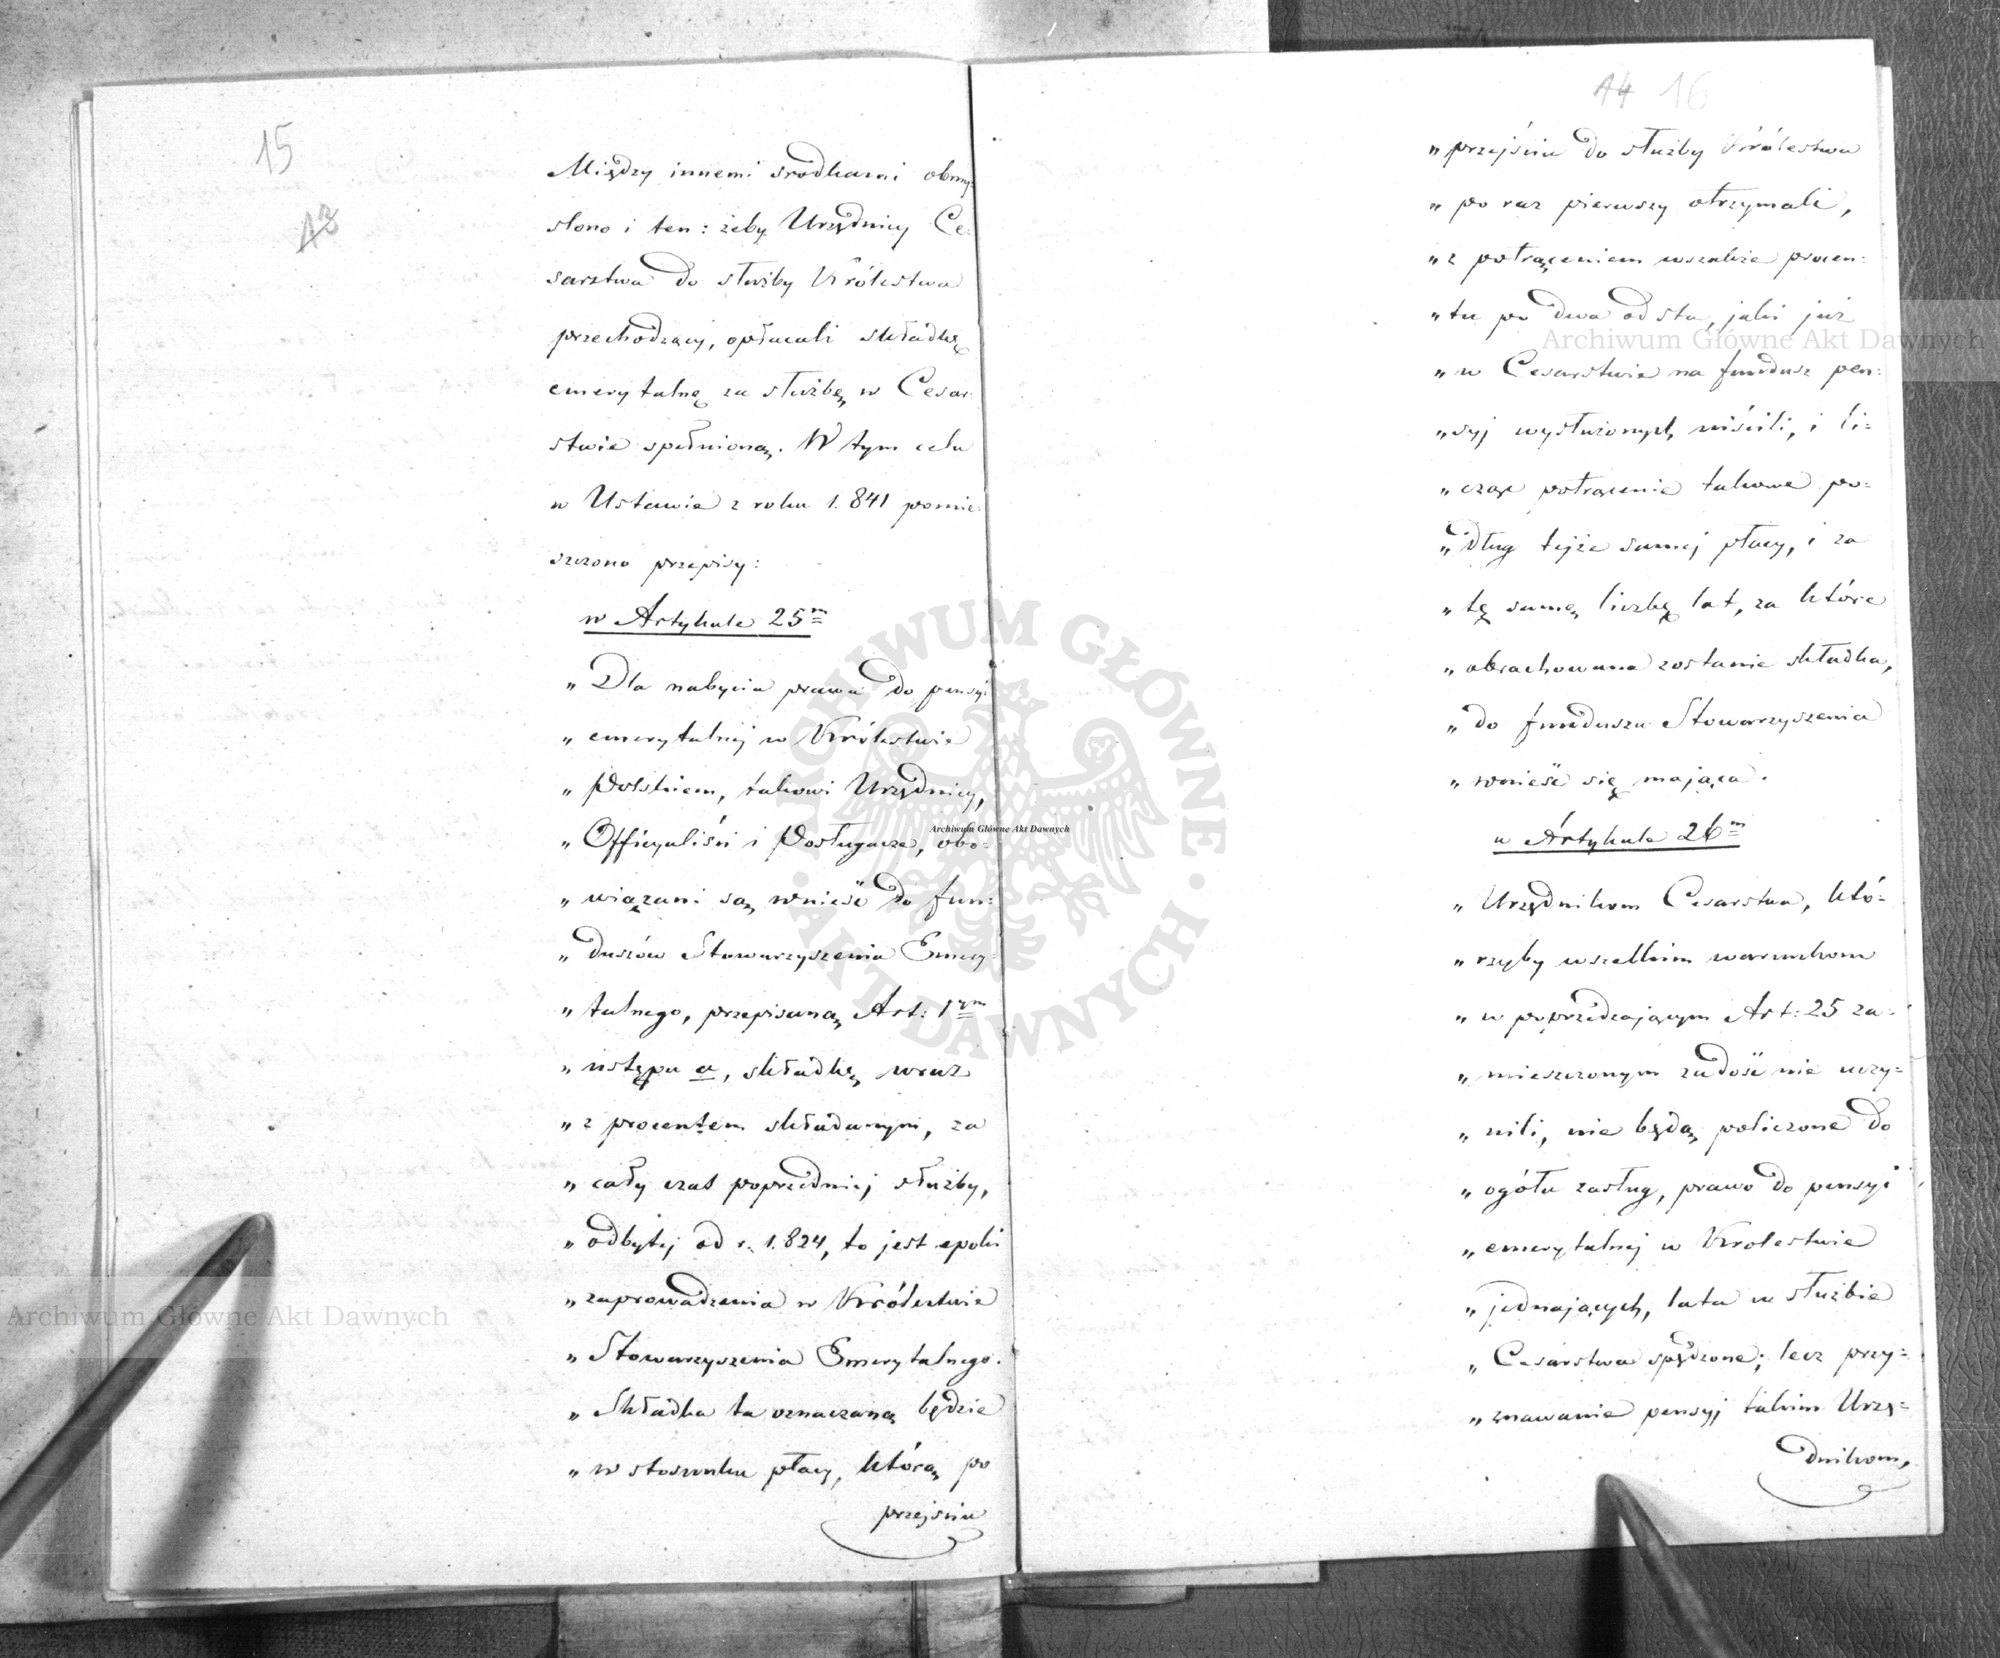 15
13
Między innemi srodkami obmy:
slono i ten: żeby Urzędnicy Ce:
sarstwa do służby Królestwa
przechodzący, opłacali składkę
emerytalną za służbę w Cesar:
stwie spełnioną. W tym celu
w Ustawie z roku 1.841 pomie:
szczono przepisy:
w Artykule 25m
„ Dla nabycia prawa do pensyi
„ emerytalnej w Królestwie
„ Polskiem, takowi Urzędnicy,
„ Officyaliści i Posługacze, obo:
„ wiązani są wnieść do fun:
„ duszów Stowarzyszenia Emery:
„ talnego, przepisaną Art: 1ym
„ ustępu a, składkę, wraz
„ z procentem składanym, za
„ cały czas poprzedniej służby,
„ odbytej od r. 1.824, to jest epoki
„ zaprowadzenia w Królestwie
„ Stowarzyszenia Emerytalnego.
„ Składka ta oznaczaną będzie
„ w stosunku płacy, którą po
przejściu
14 16
„ przejściu do służby Królestwa
„ po raz pierwszy otrzymali,
„ z potrąceniem wszakże procen:
„ tu po dwa od sta, jaki już
„ w Cesarstwie na fundusz pen:
„ syj wysłużonych uiścili, i li:
„ cząc potrącenie takowe po:
„ dług tejże samej płacy, i za
„ tę samą liczbę lat, za które
„ obrachowana zostanie składka,
„ do funduszu Stowarzyszenia
„ wnieść się mająca.
w Artykule 26m
„ Urzędnikom Cesarstwa, któ:
„ rzyby wszelkim warunkom
„ w poprzedzającym Art: 25 za:
„ mieszczonym zadość nie uczy:
„ nili, nie będą policzone do
„ ogółu zasług, prawo do pensyi
„ emerytalnej w Krolestwie
„ jednających, lata w służbie
„ Cesarstwa spędzone; lecz przy:
„ znawanie pensyj takim Urzę:
dnikom,
Archiwum Główne Akt Dawnych
Archiwum Główne Akt Dawnych
Archiwum Główne Akt Dawnych
ARCHIWUM GŁÓWNE
AKT DAWNYCH